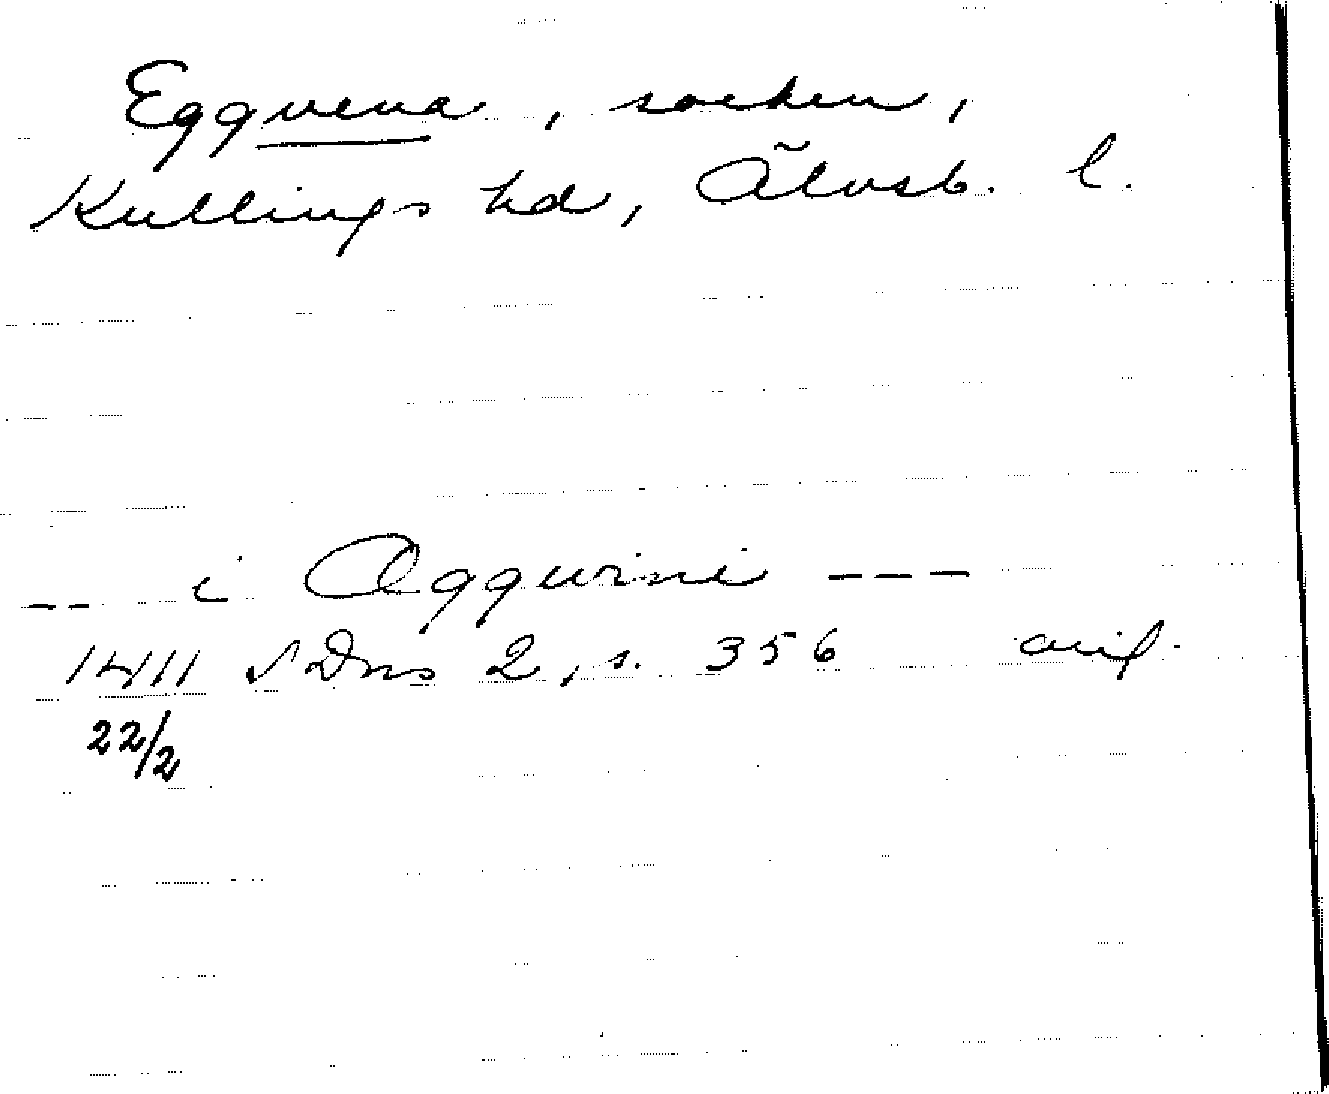 Eggvena, socken,
Kullings hd, Älvsb. l.
-- i Aggwini ---
1411 SDns 2, s. 356 avig.
22/2